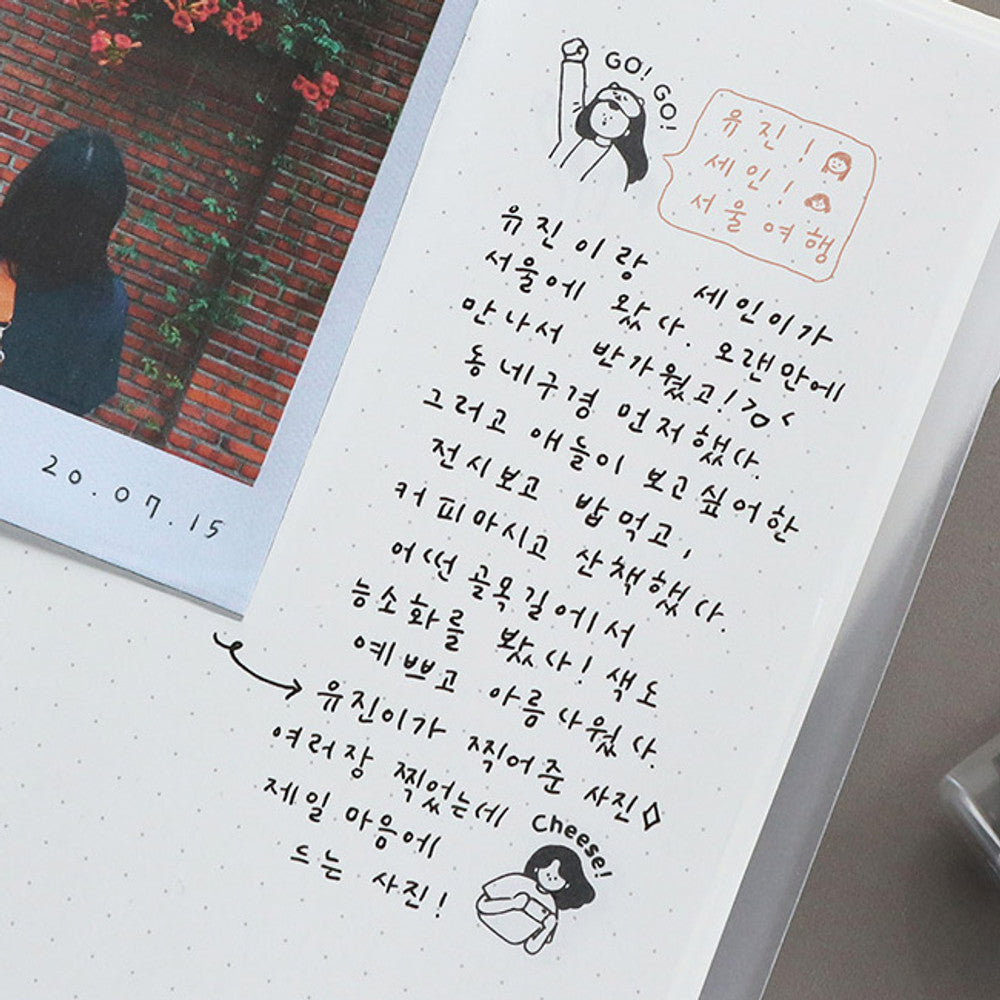 GO! GO!
유진!
세인!
서울여행
유진이랑 세인이가
서울에 왔다. 오랜만에
만나서 반가웠고! >ㅁ<
동네구경 먼저했다.
그러고 애들이 보고싶어한
전시보고 밥먹고,
커피마시고 산책했다.
어떤 골목길에서
능소화를 봤다! 색도
예쁘고 아름다웠다.
유진이가 찍어준 사진◇
여러장 찍었는데
제일 마음에
드는 사진!
Cheese!
20.07.15